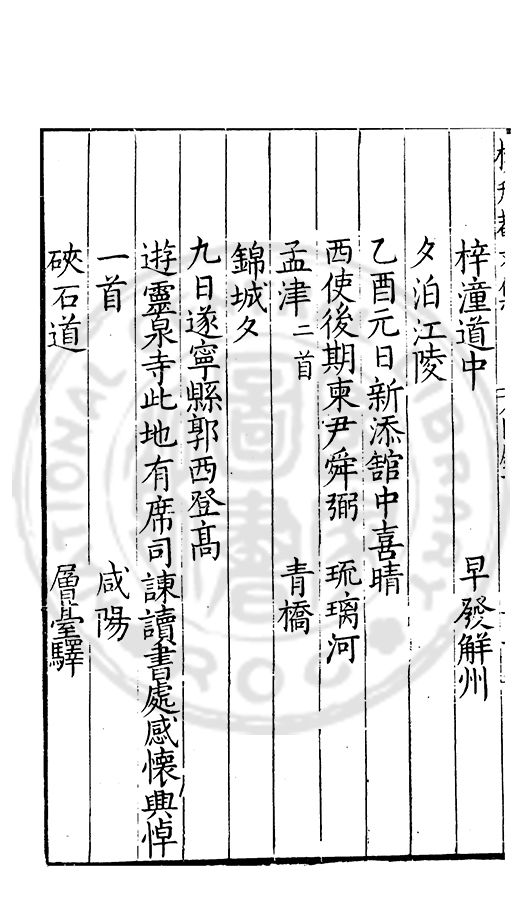 梓潼道中　早發解州
夕泊江陵
乙酉元日新添舘中喜晴
西使後期柬尹舜弼　琉璃河
孟津二首　青橋
錦城夕
九日遂寧縣郭西登高
遊靈泉寺此地有席司諫讀書處感懷興悼
一首　咸陽
硤石道　層臺驛